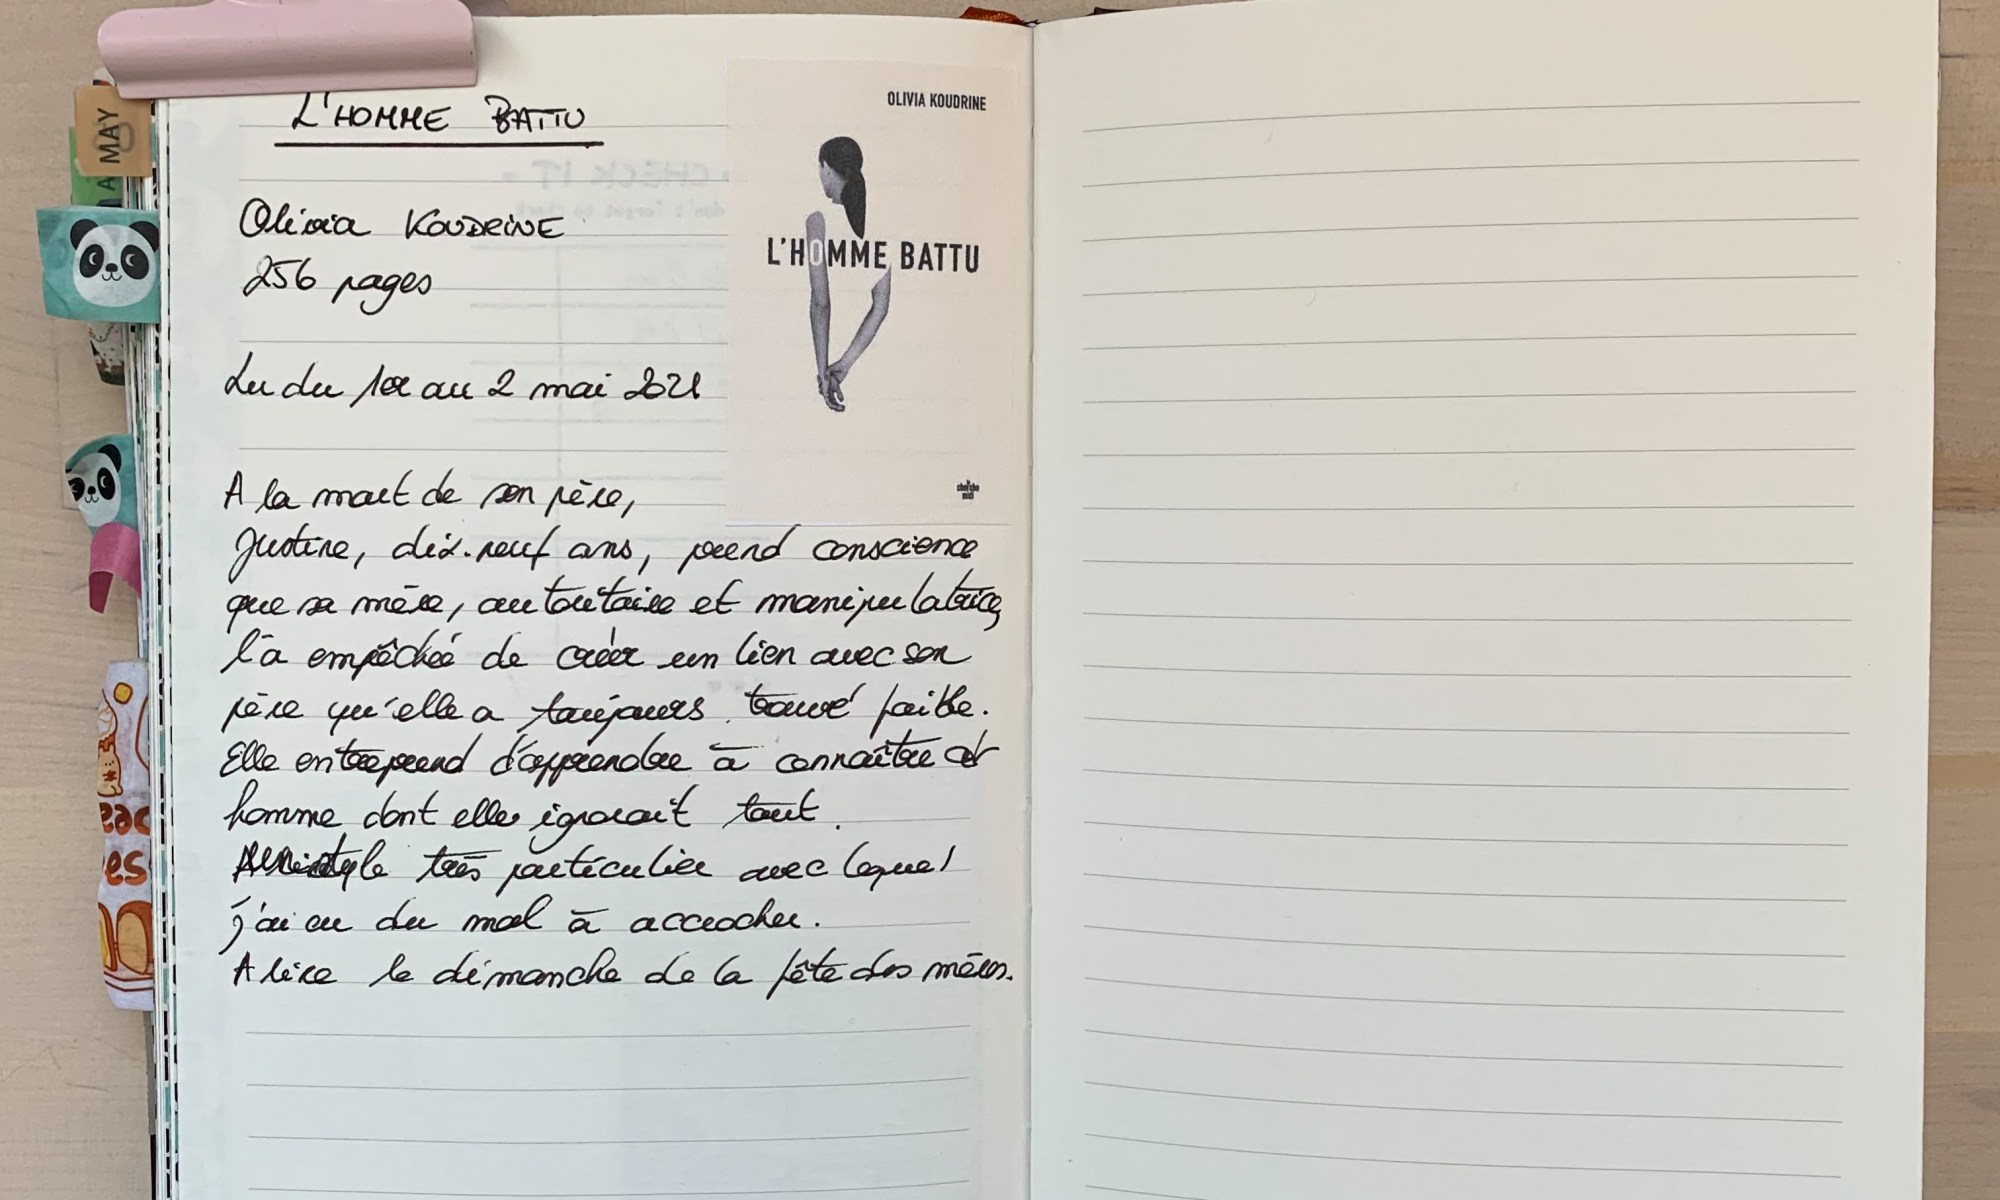 MAY
L'HOMME BATTU
Olivia KOUDRINE
256 pages
Lu du 1er au 2 mai 2021
A la mort de son père,
Justine, dix-neuf ans, prend conscience
que sa mère, autoritaire et manipulatrice,
l'a empêchée de créer un lien avec son
père qu'elle a toujours trouvé faible.
Elle entreprend d'apprendre à connaître cet
homme dont elle ignorait tout.
style très particulier avec lequel
j'ai eu du mal à accrocher.
A lire le dimanche de la fête des mères.
OLIVIA KOUDRINE
L'HOMME BATTU
cherche
midi
CHECK IT
don't forget to check